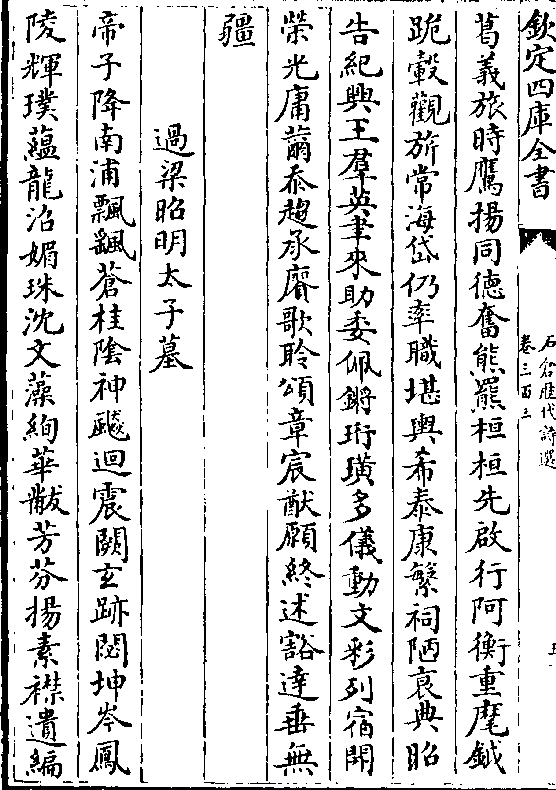 欽定四庫全書
石倉歷代詩選
卷三百三
五
葛義旅時鷹揚同德奮熊羆桓桓先啟行阿衡重麾鉞
跪轂觀旂常海岱仍率職堪輿希泰康繁祠陋哀典昭
告紀興王羣英聿來助委佩鏘珩璜多儀動文彩列宿開
榮光庸薾忝趨承賡歌聆頌章宸猷願終述豁達垂無
疆
過梁昭明太子墓
帝子降南浦飄飄蒼桂陰神飈迴震闕玄跡閟坤岑鳳
陵輝璞蘊龍沼媚珠沈文藻絢華黻芳芬揚素襟遺編